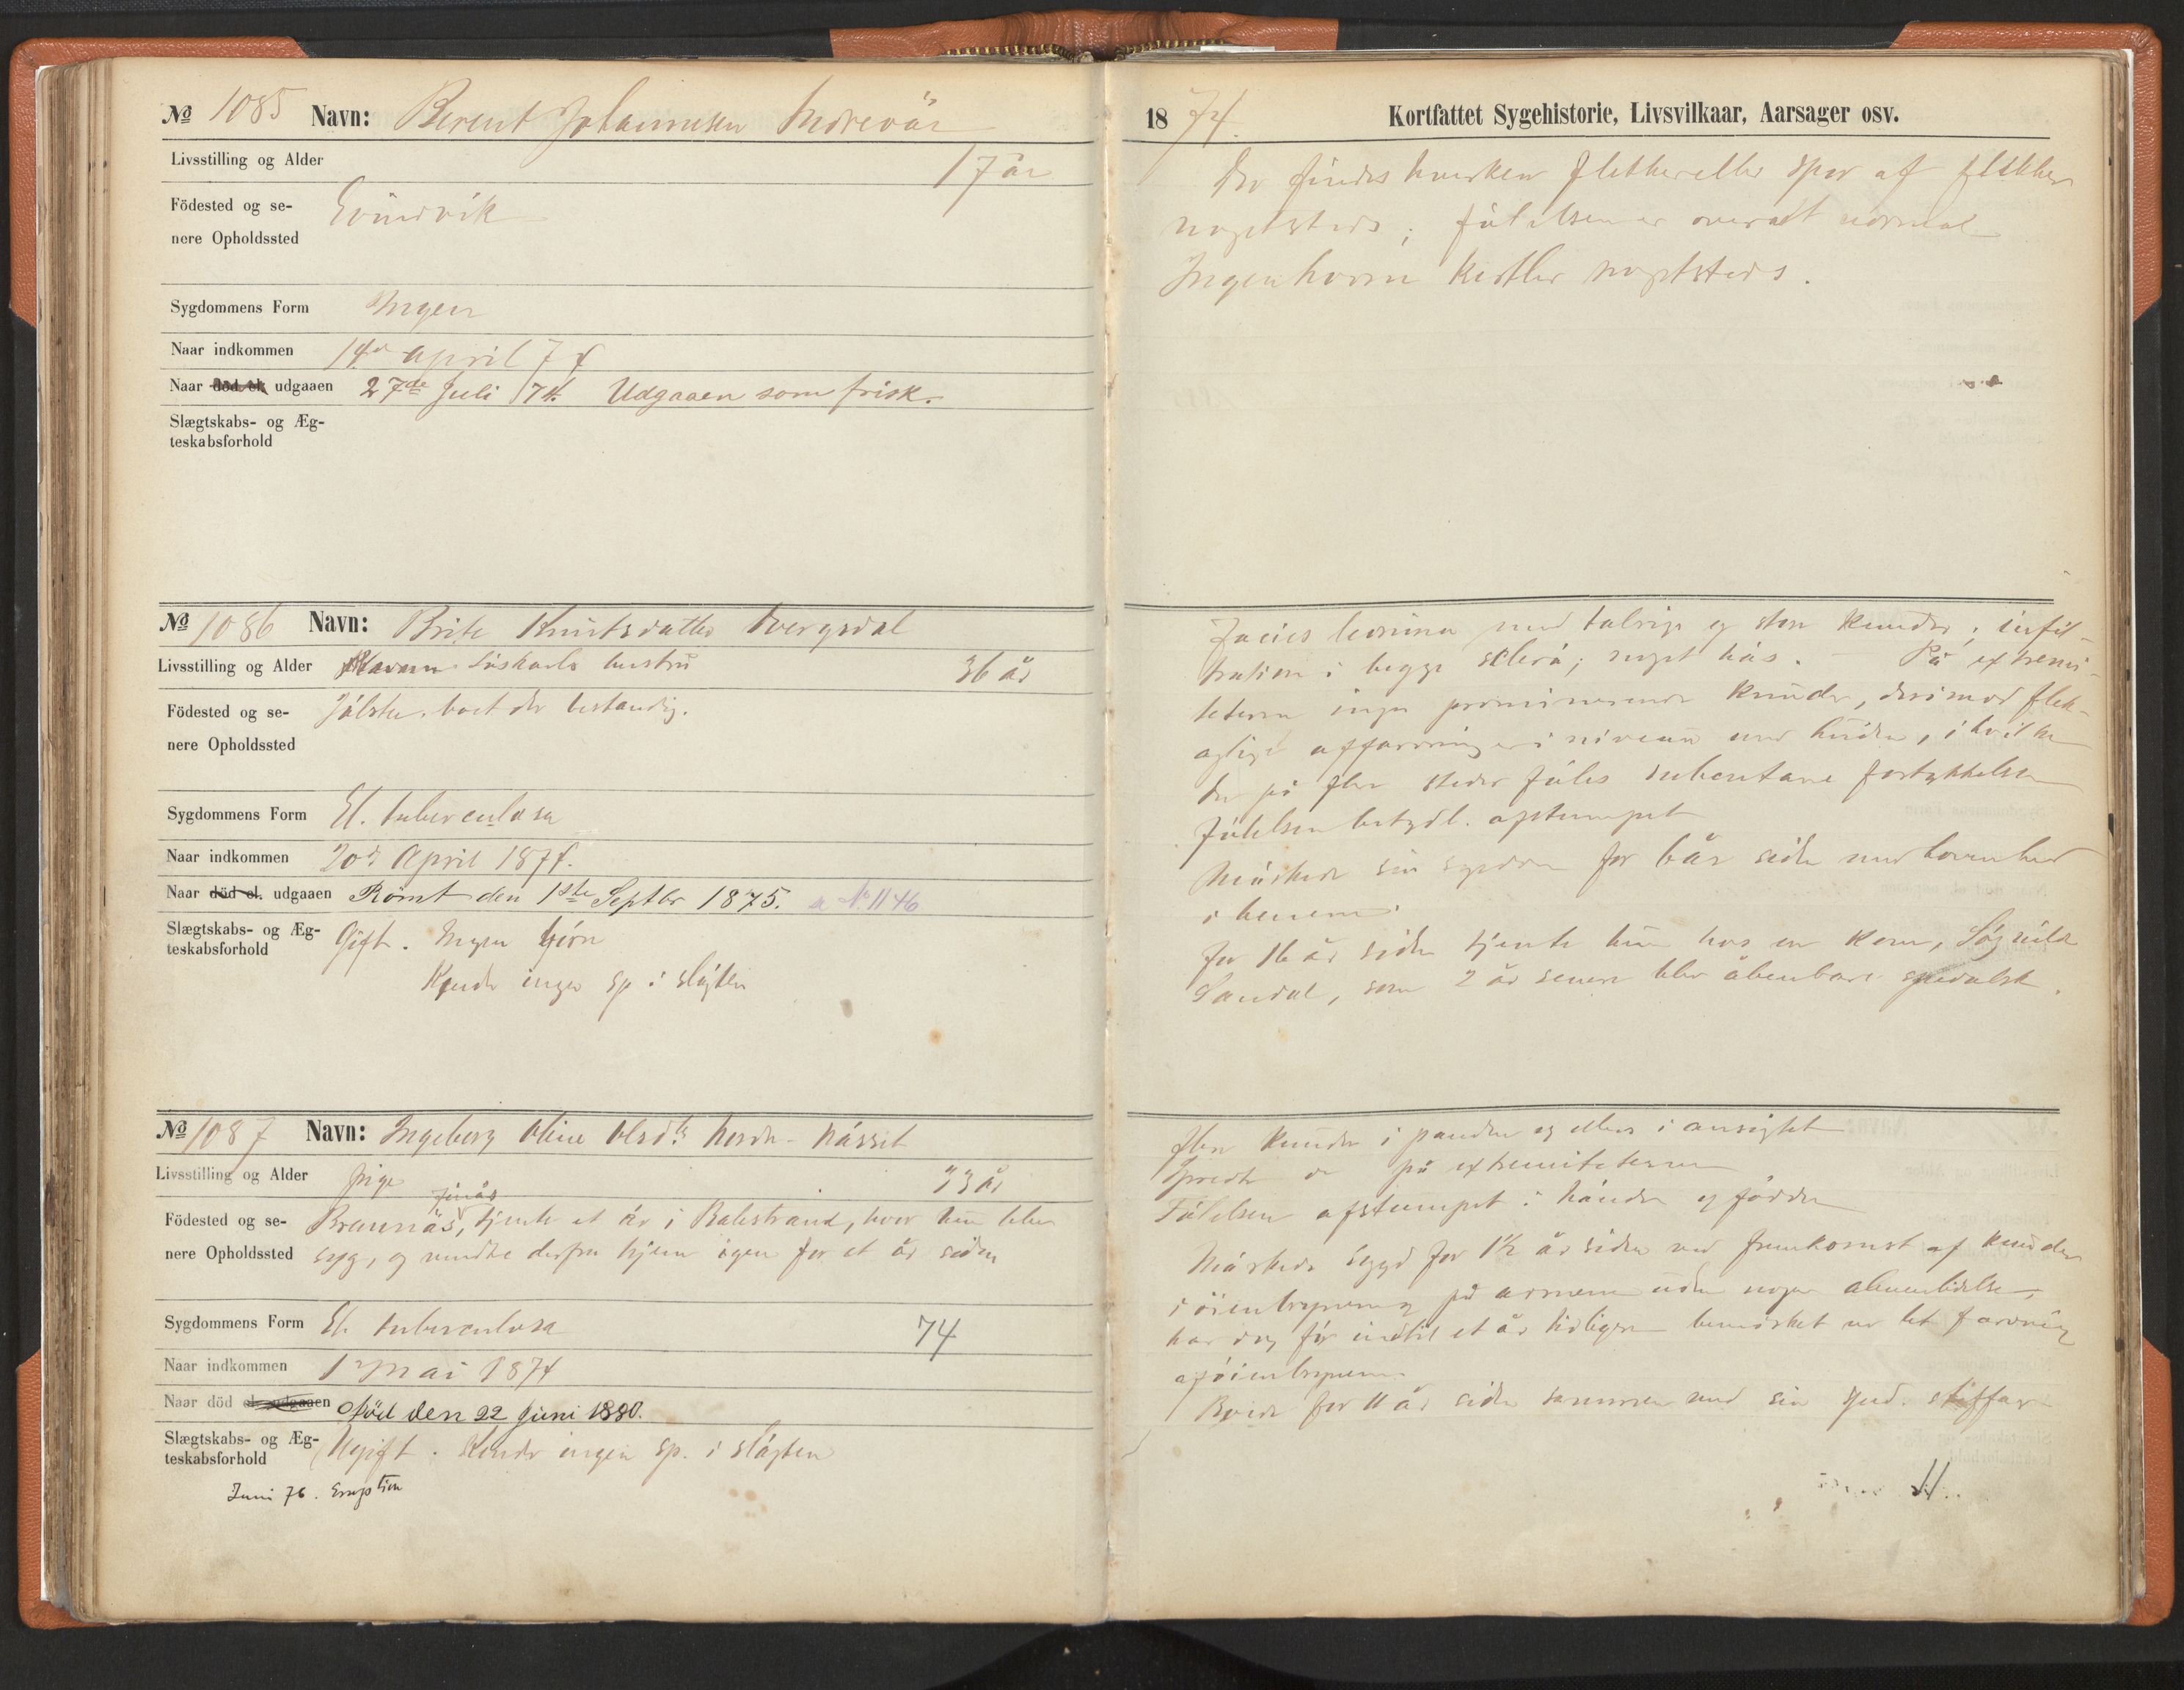 № 1085 Navn: Berent Johannesen Indrevär
Livsstilling og Alder 17 år
Födested og se-
nere Opholdssted Evindvik
Sygdommens Form Ingen
Naar indkommen 14d April 74
Naar död el. udgaaen 27de Juli 74. Udgaaen som frisk.
Slægtskabs- og Æg-
teskabsforhold
№ 1086 Navn: Brite Knutsdatter
Livsstilling og Alder hustru 36 år
Födested og se- Jölster, boet der bestandig.
nere Opholdssted
Sygdommens Form El. tuberculosa
Naar indkommen 20d April 1874.
Naar död el. udgaaen Römt den 1ste Septbr 1875. № 1146
Slægtskabs- og Æg- Gift. Ingen börn
teskabsforhold
Kjender ingen sp i slägten
№ 1087 Navn: Ingeborg Oline Olsdtr Nordre-Nässet
Livsstilling og Alder Pige 23 år
Födested og se- tjente et år i Balestrand, hvor hun blev
nere Opholdssted syg, og vendte derfra hjem igen for et år siden
Sygdommens Form El. tuberculosa 74
Naar indkommen 1 Mai 1874
Naar död el. udgaaen död den 22 Juni 1880.
Slægtskabs- og Æg- Ugift. Kender ingen sp. i slägten
teskabsforhold
Juni 76. Eruption
1874. Kortfattet Sygehistorie, Livsvilkaar, Aarsager osv.
Der findes hverken flekker eller spor af flekker
nogetsteds; fölelsen er overalt normal
Ingen hovne kertler nogetsteds.
Facies leonina med talrige og store knuder; infil-
tration i begge sclerä; noget häs. – På extremi-
teterne ingen prominerende knuder, derimod flek-
agtige affarvninger i niveau med huden, i hvilke
der på flere steder föles subcutane fortykkelser
Fölelsen betydl. afstumpet
Märkede sin sygdom for 6 år siden med hovenhed
i benene.
For 16 år siden tjente hun hos en kone,
Sandal, som 2 år senere blev åbenbare spedalsk.
Flere knuder i panden og ellers i ansigtet
Spredte do på extremiteterne
Fölelsen afstumpet i händer og födder
Märkede sygd for 1½ år siden ved fremkomst af knuder
i öienbrynene og på armene uden nogen almenlidelse,
har dog för indtil et år tidligere bemärket en let farvning
af öienbrynene.
Boede for 11 år siden sammen med sin sped. stiffar